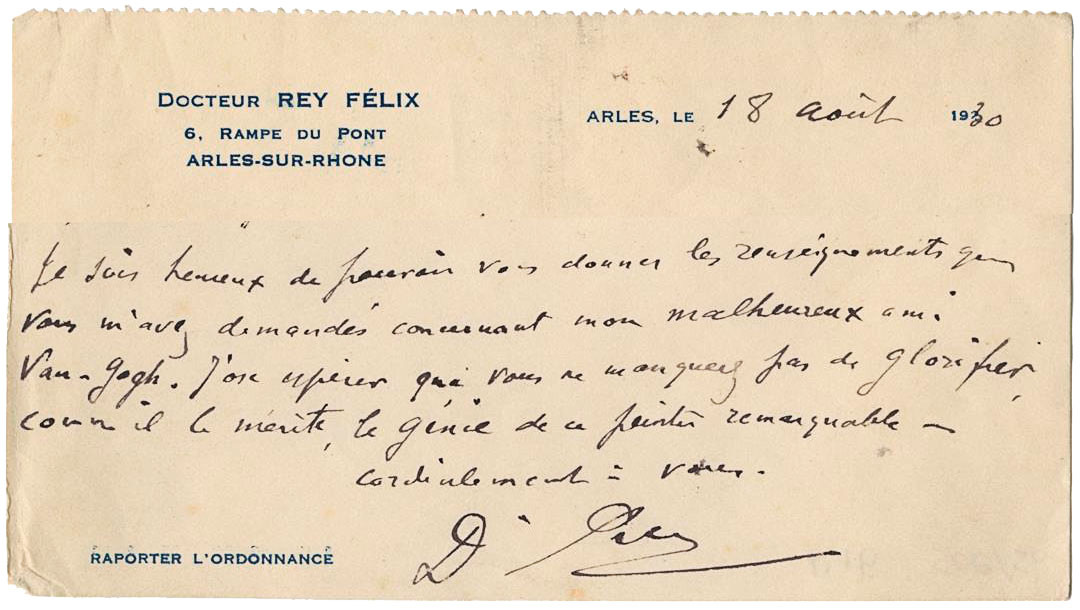 DOCTEUR REY FÉLIX
6, RAMPE DU PONT
ARLES-SUR-RHONE
ARLES, LE 18 août 1930
Je suis heureux de pouvoir vous donner les renseignements que
vous m'avez demandés concernant mon malheureux ami
Van-Gogh. J'ose espérer que vous ne manquerez pas de glorifier,
comme il le mérite, le génie de ce peintre remarquable —
cordialement à vous.
Dr Rey
RAPORTER L'ORDONNANCE